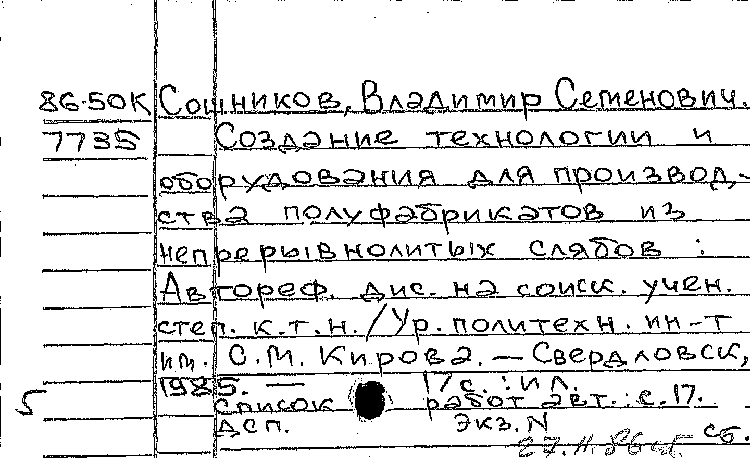 86-50К Сошников, Владимир Семенович.
7735 Создание технологии и
оборудования для производ-
ства полуфабрикатов из
непрерывнолитых слябов :
Автореф. дис. на соиск. учен.
степ. к.т.н. / Ур. политехн. ин-т
им. С.М. Кирова. — Свердловск,
1985. — 17 с. : ил.
5 Список работ авт.: с. 17.
ДСП. Экз. N сб.
27.11.86